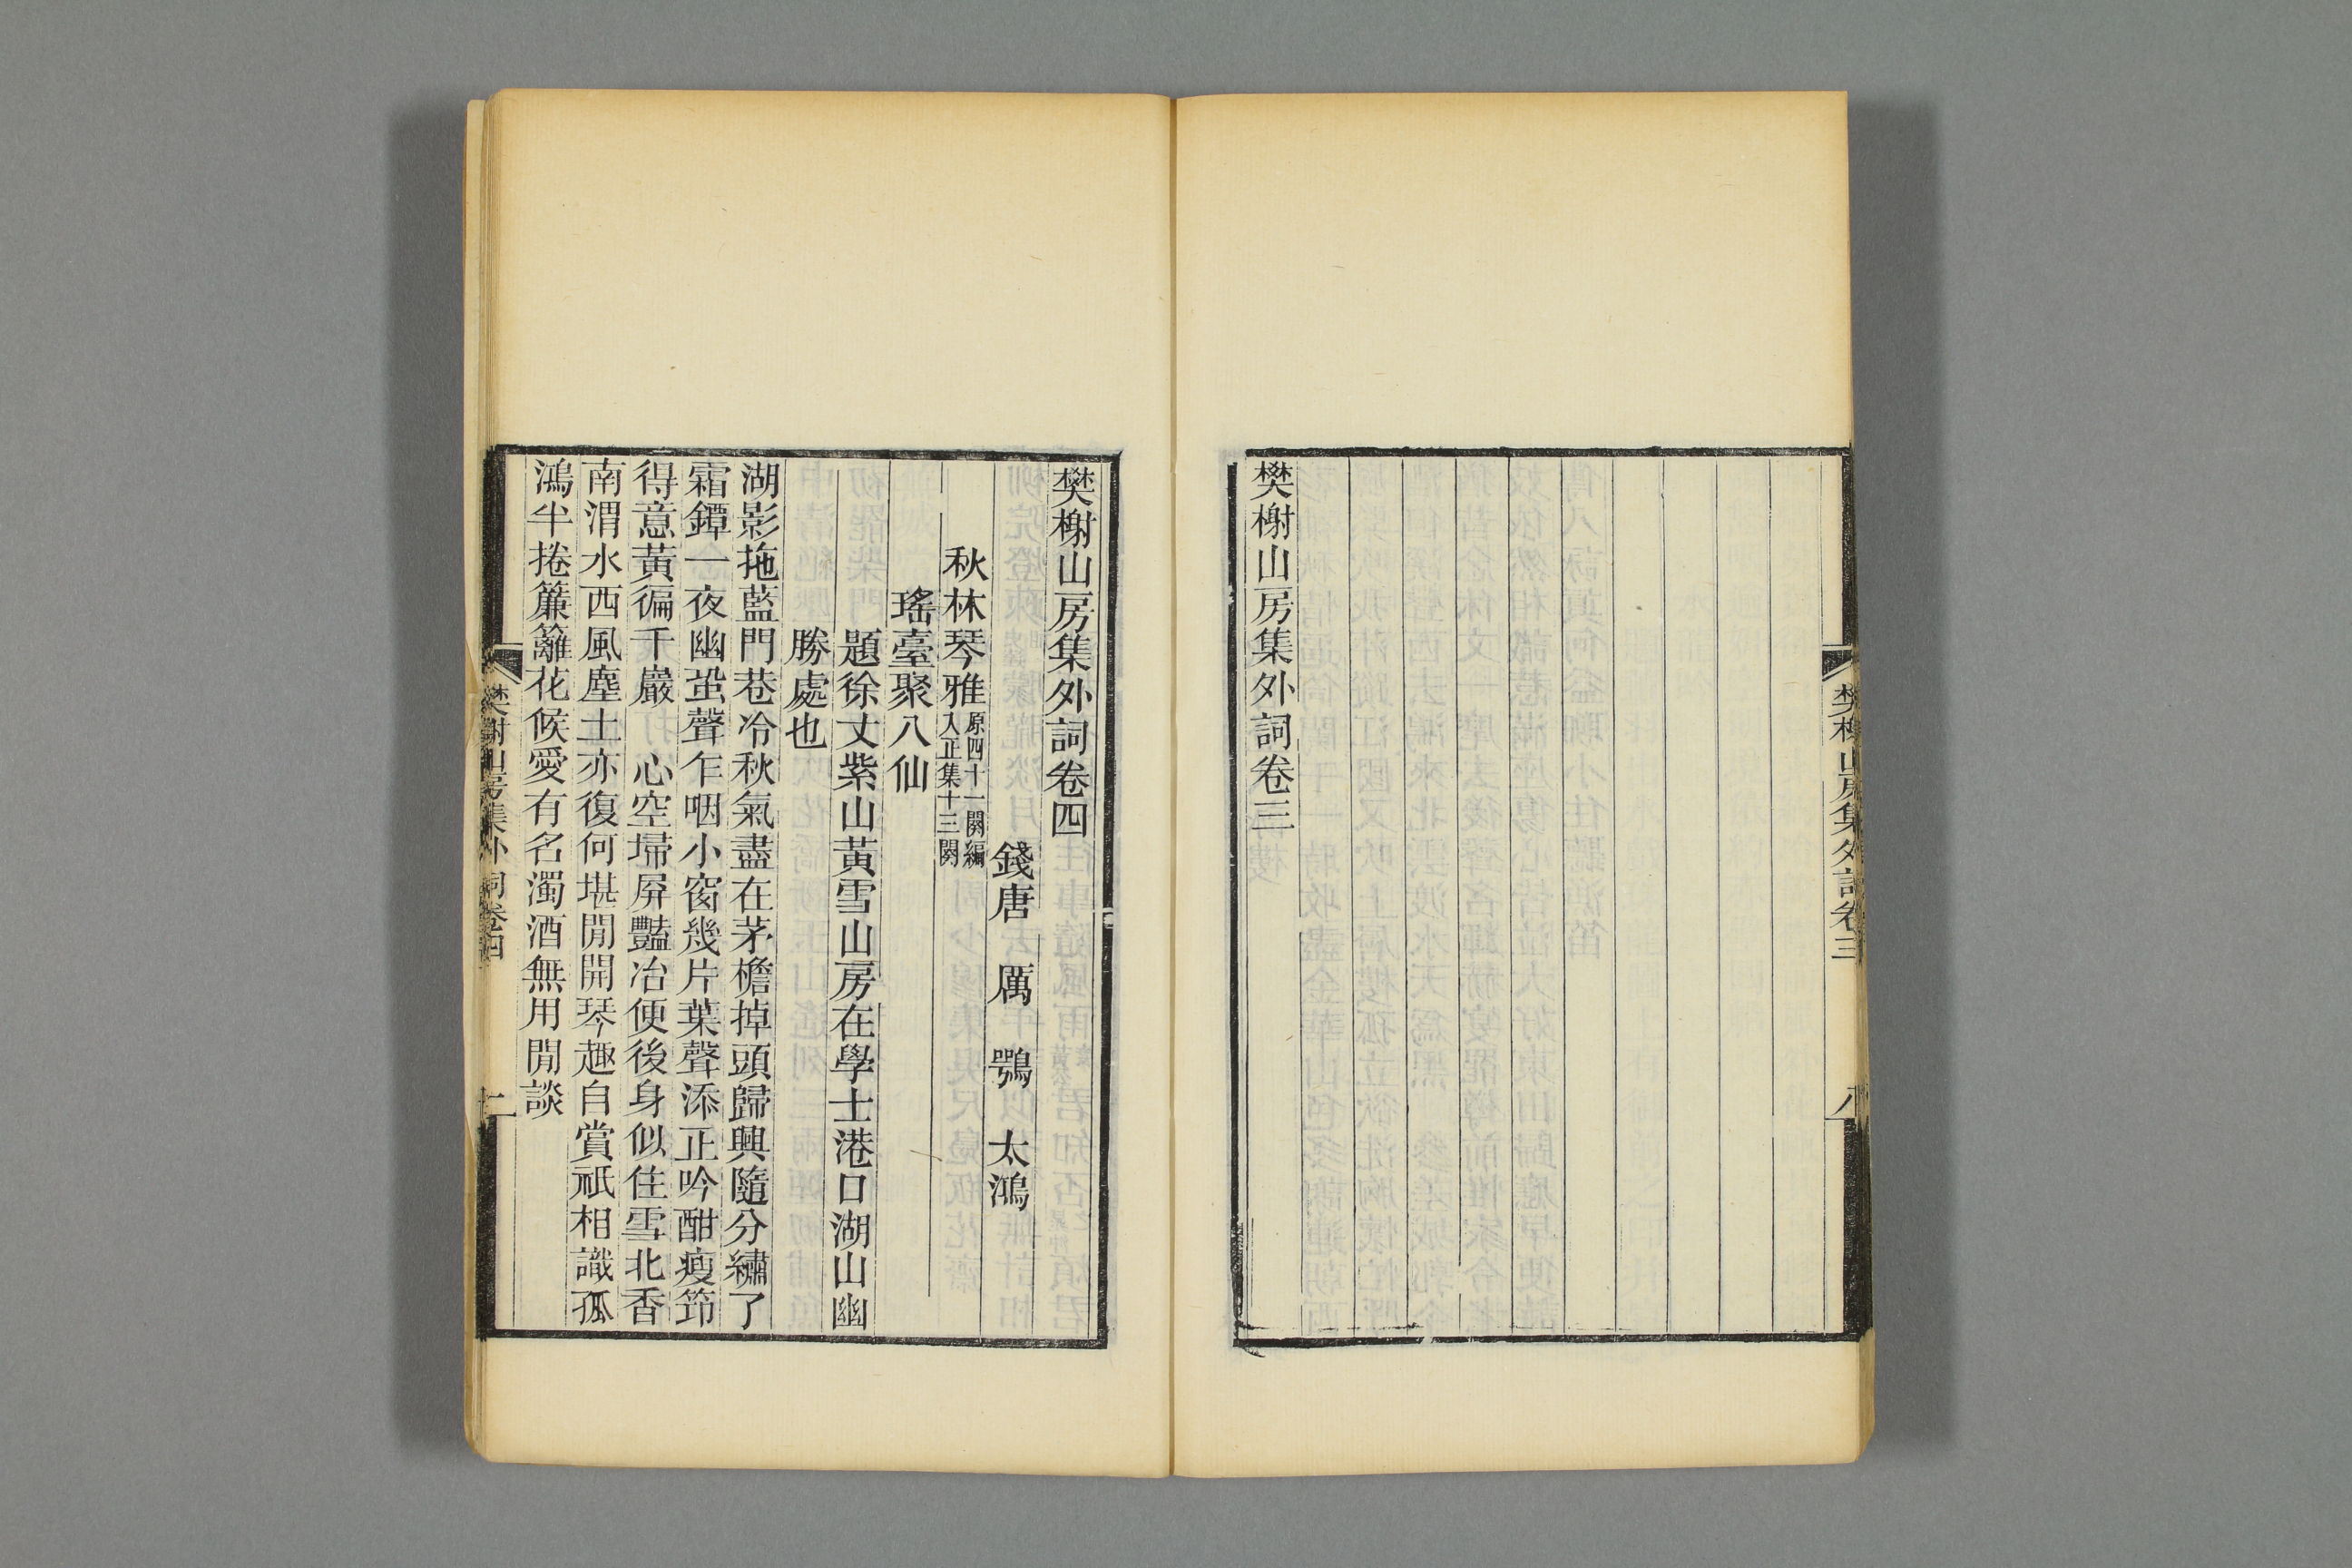 樊榭山房集外詞卷三
八
樊榭山房集外詞卷三
樊榭山房集外詞卷四
錢唐 厲 鶚 太鴻
秋林琴雅原四十一闋編入正集十三闋
瑤臺聚八仙
題徐丈紫山黃雪山房在學士港口湖山幽
勝處也
湖影拖藍門巷冷秋氣盡在茅檐掉頭歸興隨分繡了
霜鐔一夜幽蛩聲乍咽小窗幾片葉聲添正吟酣瘦筇
得意黃徧千巖 心空埽屏豔冶便後身似住雪北香
南渭水西風塵土亦復何堪閒開琴趣自賞祇相識孤
鴻半捲簾籬花候愛有名濁酒無用閒談
樊榭山房集外詞卷四
一